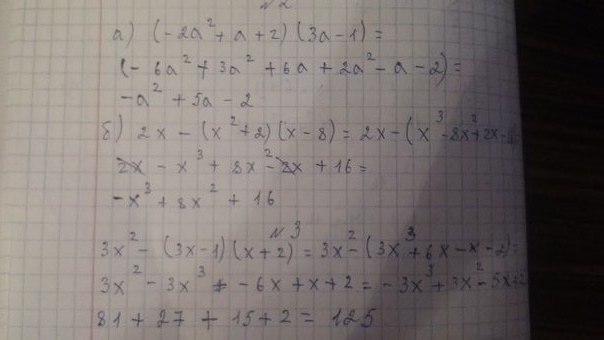 №2
а) (-2a² + a + 2) (3a - 1) =
(- 6a² + 3a² + 6a + 2a² - a - 2) =
-a² + 5a - 2
б) 2x - (x² + 2) (x - 8) = 2x - (x³ - 8x² + 2x -
2x - x³ + 8x² - 2x + 16 =
-x³ + 8x² + 16
№3
3x² - (3x - 1) (x + 2) = 3x² - (3x³ + 6x - x - 2) =
3x² - 3x³ - 6x + x + 2 = -3x³ + 3x² - 5x + 2
81 + 27 + 15 + 2 = 125